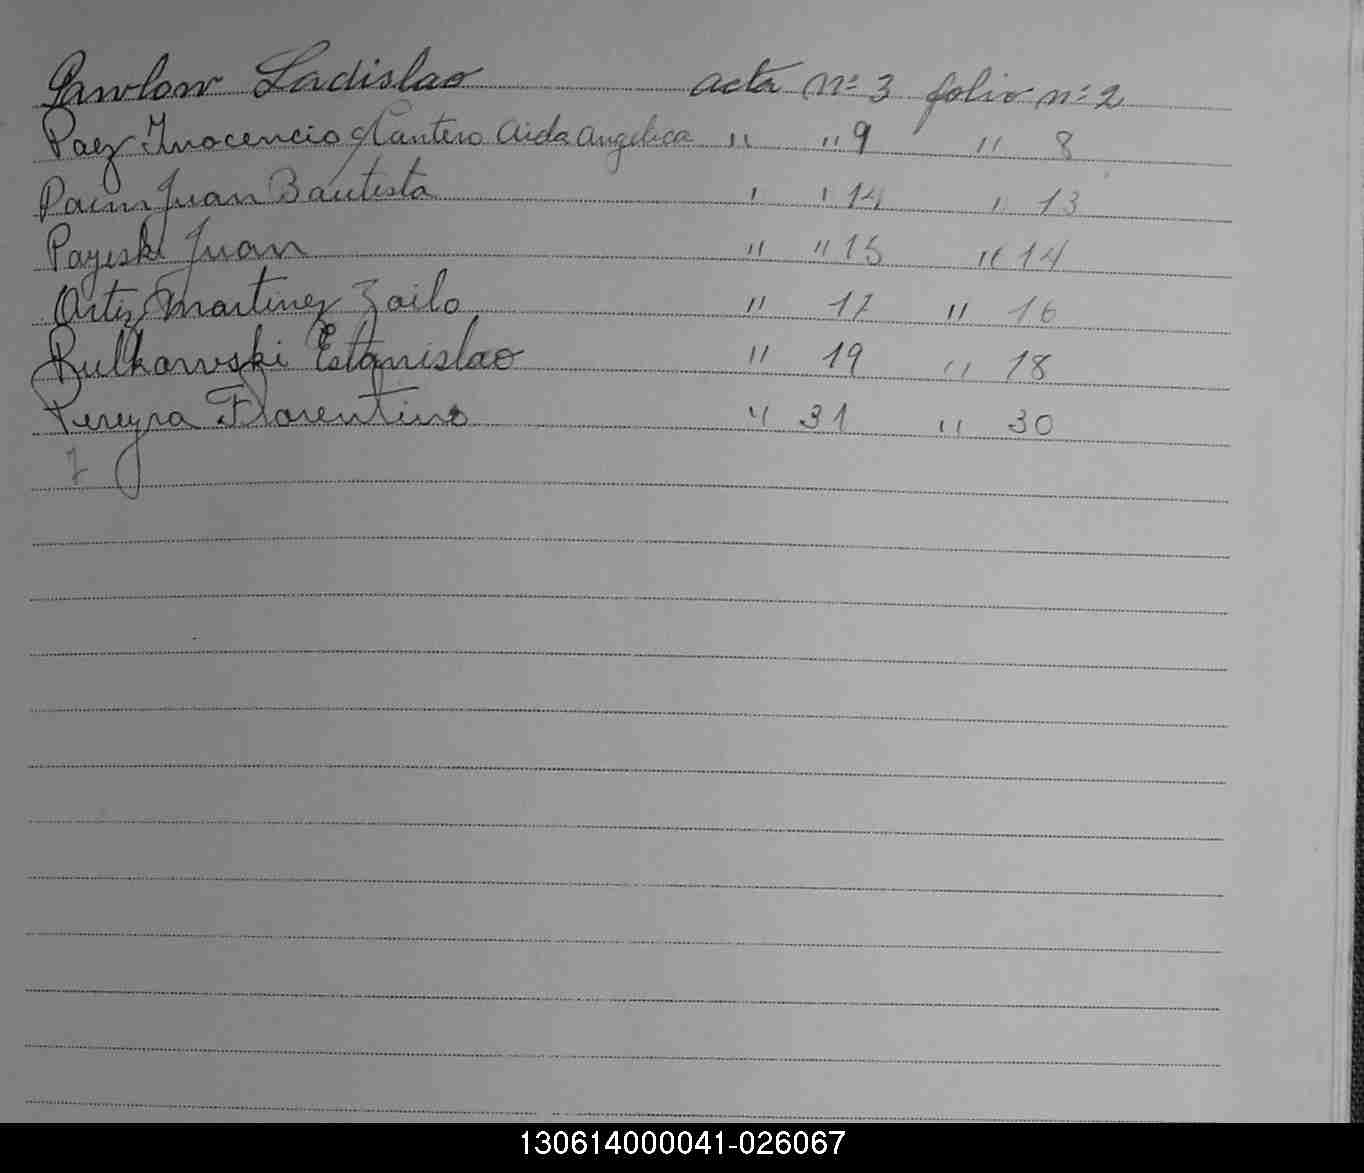 Pawlow Ladislao acta nº 3 folio nº 2
Paez Inocencio y Cantero Aida Angelica " " 9 " 8
Paim Juan Bautista " " 14 " 13
Payeski Juan " " 15 " 14
Ortiz Martinez Zoilo " 17 " 16
Rulkowski Estanislao " 19 " 18
Pereyra Florentino " 31 " 30
7
130614000041-026067